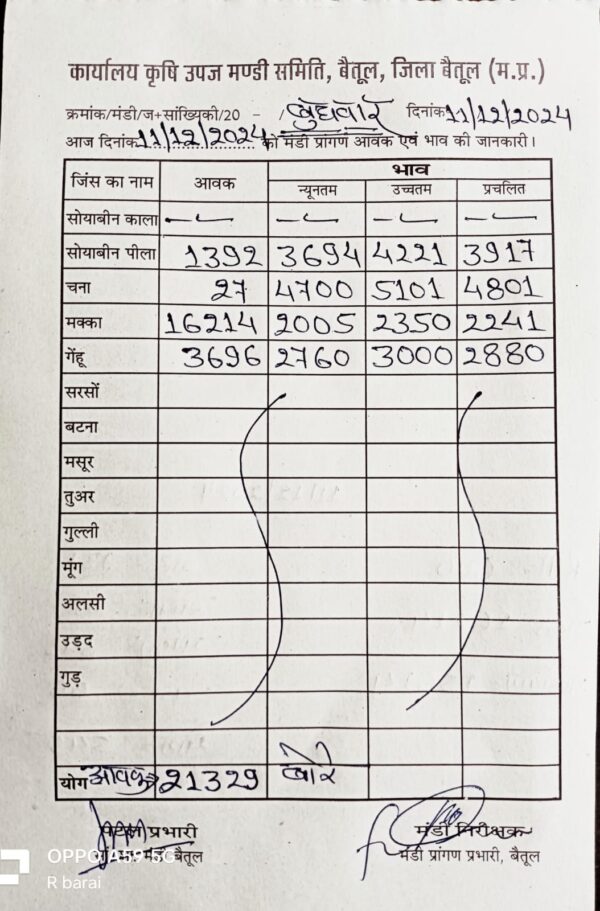 कार्यालय कृषि उपज मण्डी समिति, बैतूल, जिला बैतूल (म.प्र.)
क्रमांक/मंडी/ज+सांख्यिकी/20 - /बुधवार दिनांक 11/12/2024
आज दिनांक 11/12/2024 को मंडी प्रांगण आवक एवं भाव की जानकारी।
जिंस का नाम आवक भाव
न्यूनतम उच्चतम प्रचलित
सोयाबीन काला — — — —
सोयाबीन पीला 1392 3694 4221 3917
चना 27 4700 5101 4801
मक्का 16214 2005 2350 2241
गेंहू 3696 2760 3000 2880
सरसों
बटना
मसूर
तुअर
गुल्ली
मूंग
अलसी
उड़द
गुड़
योग आवक 21329 बोरे
प्रभारी मंडी निरीक्षक
बैतूल मंडी प्रांगण प्रभारी, बैतूल
OPPO A59 5G
R barai